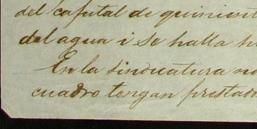 del capital de quinient
del agua i se halla
En la sindicatura no
cuadro tengan prestad